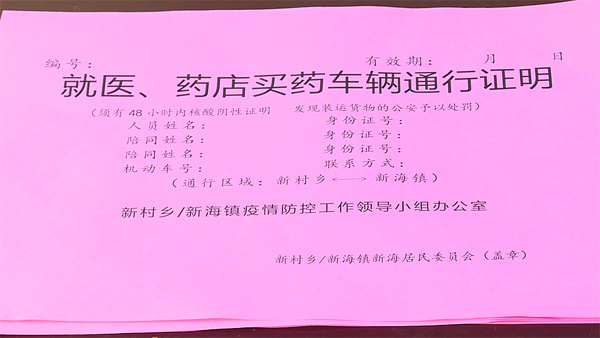 编号： 有效期： 月 日
就医、药店买药车辆通行证明
（须有48小时内核酸阴性证明 发现装运货物的公安予以处罚）
人员姓名： 身份证号：
陪同姓名： 身份证号：
陪同姓名： 身份证号：
机动车号： 联系方式：
（通行区域：新村乡<——>新海镇）
新村乡/新海镇疫情防控工作领导小组办公室
新村乡/新海镇新海居民委员会（盖章）